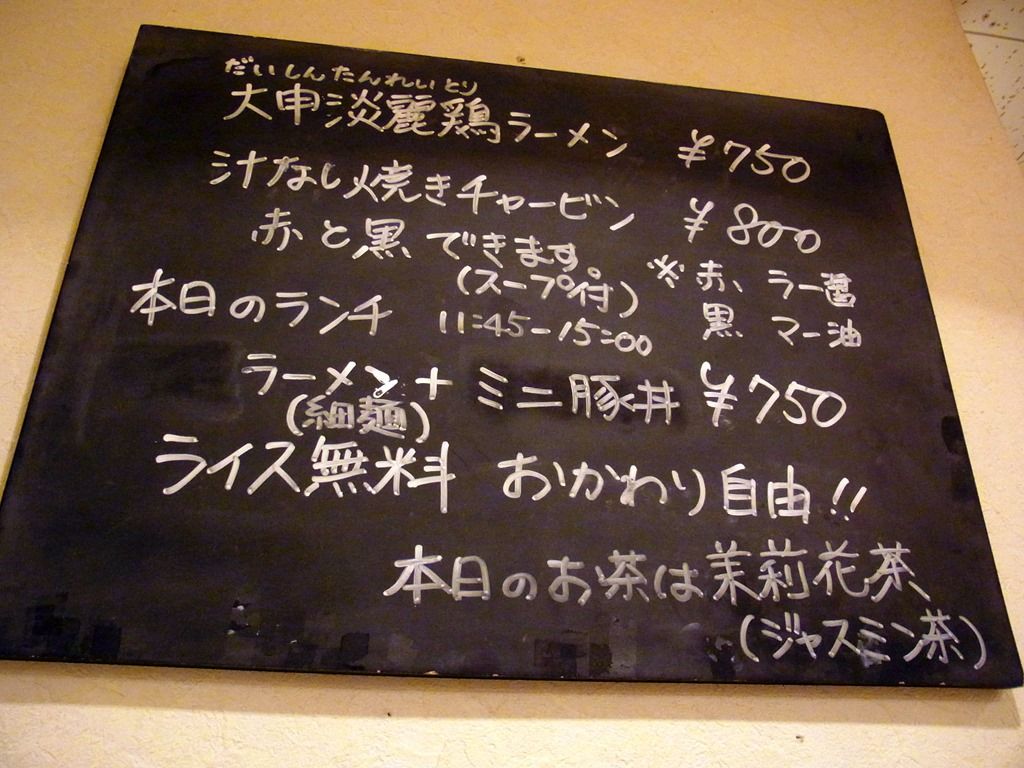 だいしんたんれいとり
大申淡麗鶏ラーメン ¥750
汁なし焼きチャービン ¥800
赤と黒できます。
(スープ付) ※赤、ラー醤
黒 マー油
本日のランチ 11:45-15:00
ラーメン+ミニ豚丼 ¥750
(細麺)
ライス無料 おかわり自由!!
本日のお茶は茉莉花茶
(ジャスミン茶)